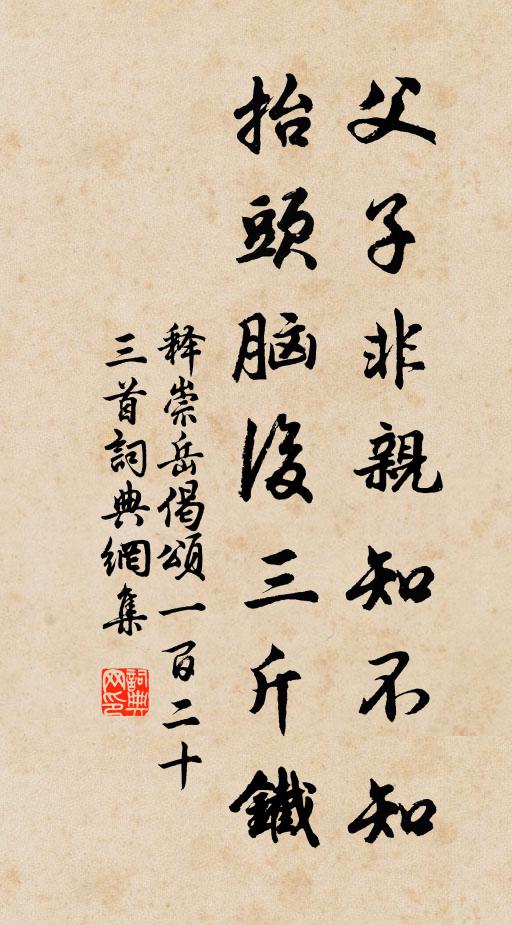 父子非親知不知
抬頭脳後三斤鐵
释崇岳偈頌一百二十
三首詞典網集
詞典网印